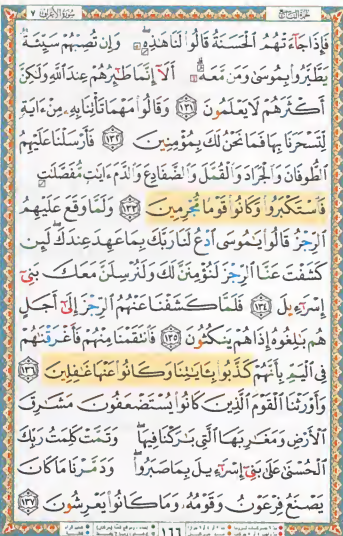 فَإِذَا جَآءَتْهُمُ ٱلْحَسَنَةُ قَالُوا۟ لَنَا هَـٰذِهِۦ ۖ وَإِن تُصِبْهُمْ سَيِّئَةٌ
يَطَّيَّرُوا۟ بِمُوسَىٰ وَمَن مَّعَهُۥٓ ۗ أَلَآ إِنَّمَا طَـٰٓئِرُهُمْ عِندَ ٱللَّهِ وَلَـٰكِنَّ
أَكْثَرَهُمْ لَا يَعْلَمُونَ ١٣١ وَقَالُوا۟ مَهْمَا تَأْتِنَا بِهِۦ مِنْ ءَايَةٍ
لِّتَسْحَرَنَا بِهَا فَمَا نَحْنُ لَكَ بِمُؤْمِنِينَ ١٣٢ فَأَرْسَلْنَا عَلَيْهِمُ
ٱلطُّوفَانَ وَٱلْجَرَادَ وَٱلْقُمَّلَ وَٱلضَّفَادِعَ وَٱلدَّمَ ءَايَـٰتٍ مُّفَصَّلَـٰتٍ
فَٱسْتَكْبَرُوا۟ وَكَانُوا۟ قَوْمًا مُّجْرِمِينَ ١٣٣ وَلَمَّا وَقَعَ عَلَيْهِمُ
ٱلرِّجْزُ قَالُوا۟ يَـٰمُوسَى ٱدْعُ لَنَا رَبَّكَ بِمَا عَهِدَ عِندَكَ ۖ لَئِن
كَشَفْتَ عَنَّا ٱلرِّجْزَ لَنُؤْمِنَنَّ لَكَ وَلَنُرْسِلَنَّ مَعَكَ بَنِىٓ
إِسْرَٰٓءِيلَ ١٣٤ فَلَمَّا كَشَفْنَا عَنْهُمُ ٱلرِّجْزَ إِلَىٰٓ أَجَلٍ
هُم بَـٰلِغُوهُ إِذَا هُمْ يَنكُثُونَ ١٣٥ فَٱنتَقَمْنَا مِنْهُمْ فَأَغْرَقْنَـٰهُمْ
فِى ٱلْيَمِّ بِأَنَّهُمْ كَذَّبُوا۟ بِـَٔايَـٰتِنَا وَكَانُوا۟ عَنْهَا غَـٰفِلِينَ ١٣٦
وَأَوْرَثْنَا ٱلْقَوْمَ ٱلَّذِينَ كَانُوا۟ يُسْتَضْعَفُونَ مَشَـٰرِقَ
ٱلْأَرْضِ وَمَغَـٰرِبَهَا ٱلَّتِى بَـٰرَكْنَا فِيهَا ۖ وَتَمَّتْ كَلِمَتُ رَبِّكَ
ٱلْحُسْنَىٰ عَلَىٰ بَنِىٓ إِسْرَٰٓءِيلَ بِمَا صَبَرُوا۟ ۖ وَدَمَّرْنَا مَا كَانَ
يَصْنَعُ فِرْعَوْنُ وَقَوْمُهُۥ وَمَا كَانُوا۟ يَعْرِشُونَ ١٣٧
١٦٦